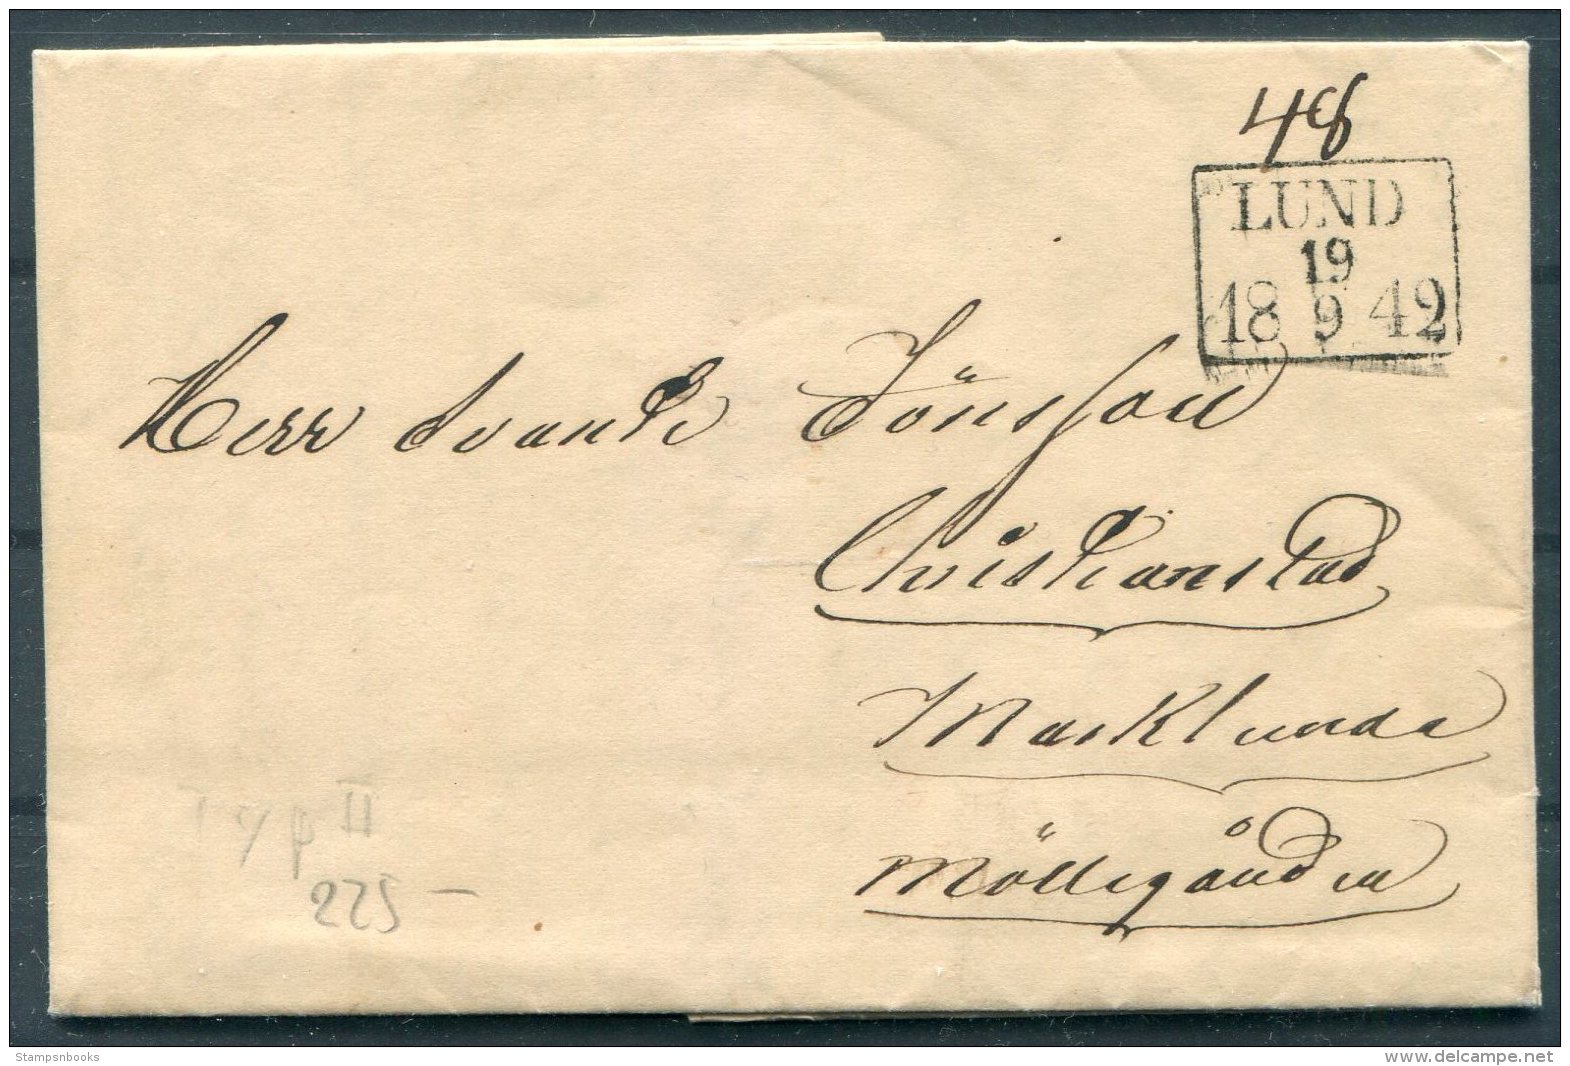 48
LUND
19
18 9 42
Herr Svante Jönsson
Christianstad
Marklunda
Möllegården
Typ II
225 –
Stampsnbooks
www.delcampe.net